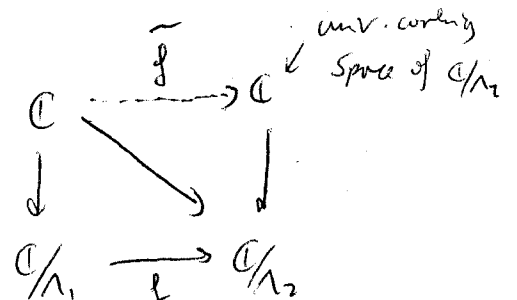 univ. covering
space of ℂ/Λ₂
f̃
ℂ ℂ
ℂ/Λ₁ ℂ/Λ₂
f